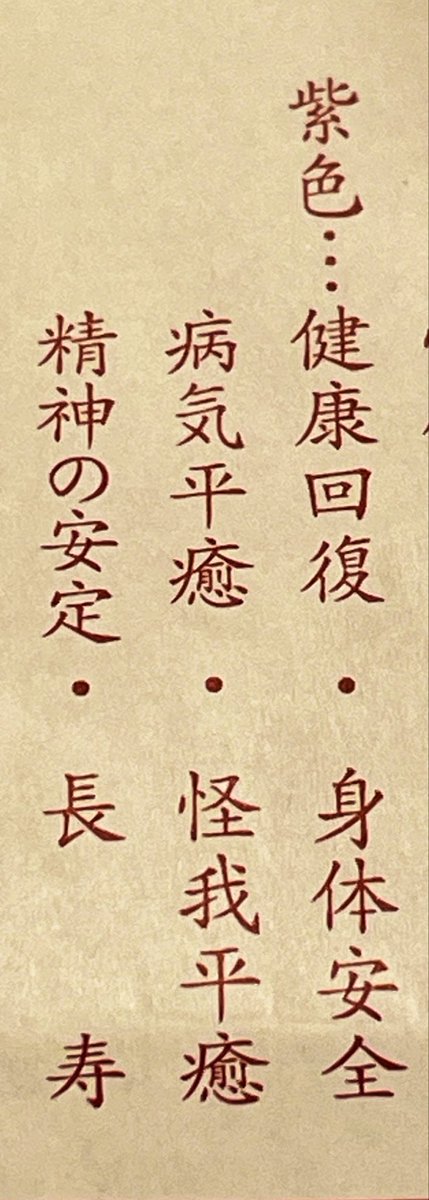 紫色…健康回復・身体安全
病気平癒・怪我平癒
精神の安定・長寿